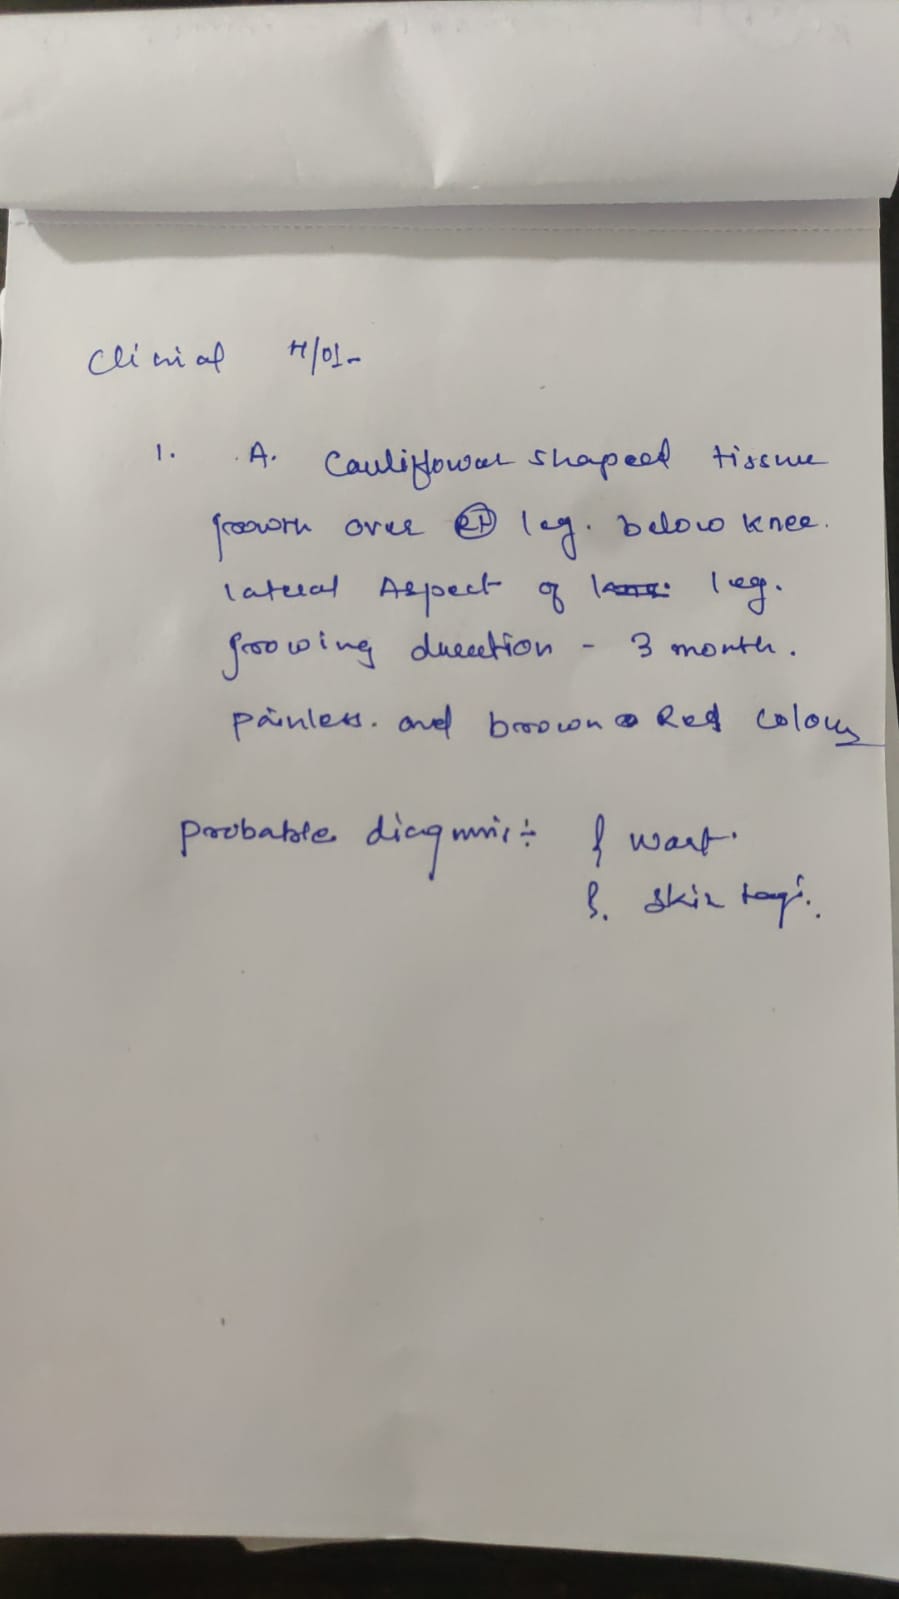 Clinical H/O:-
1. A. Cauliflower shaped tissue
growth over Rt leg. below knee.
lateral Aspect of leg.
growing duration - 3 month.
painless. and broown Red colour
probable diagnosis:- wart.
skin tags.